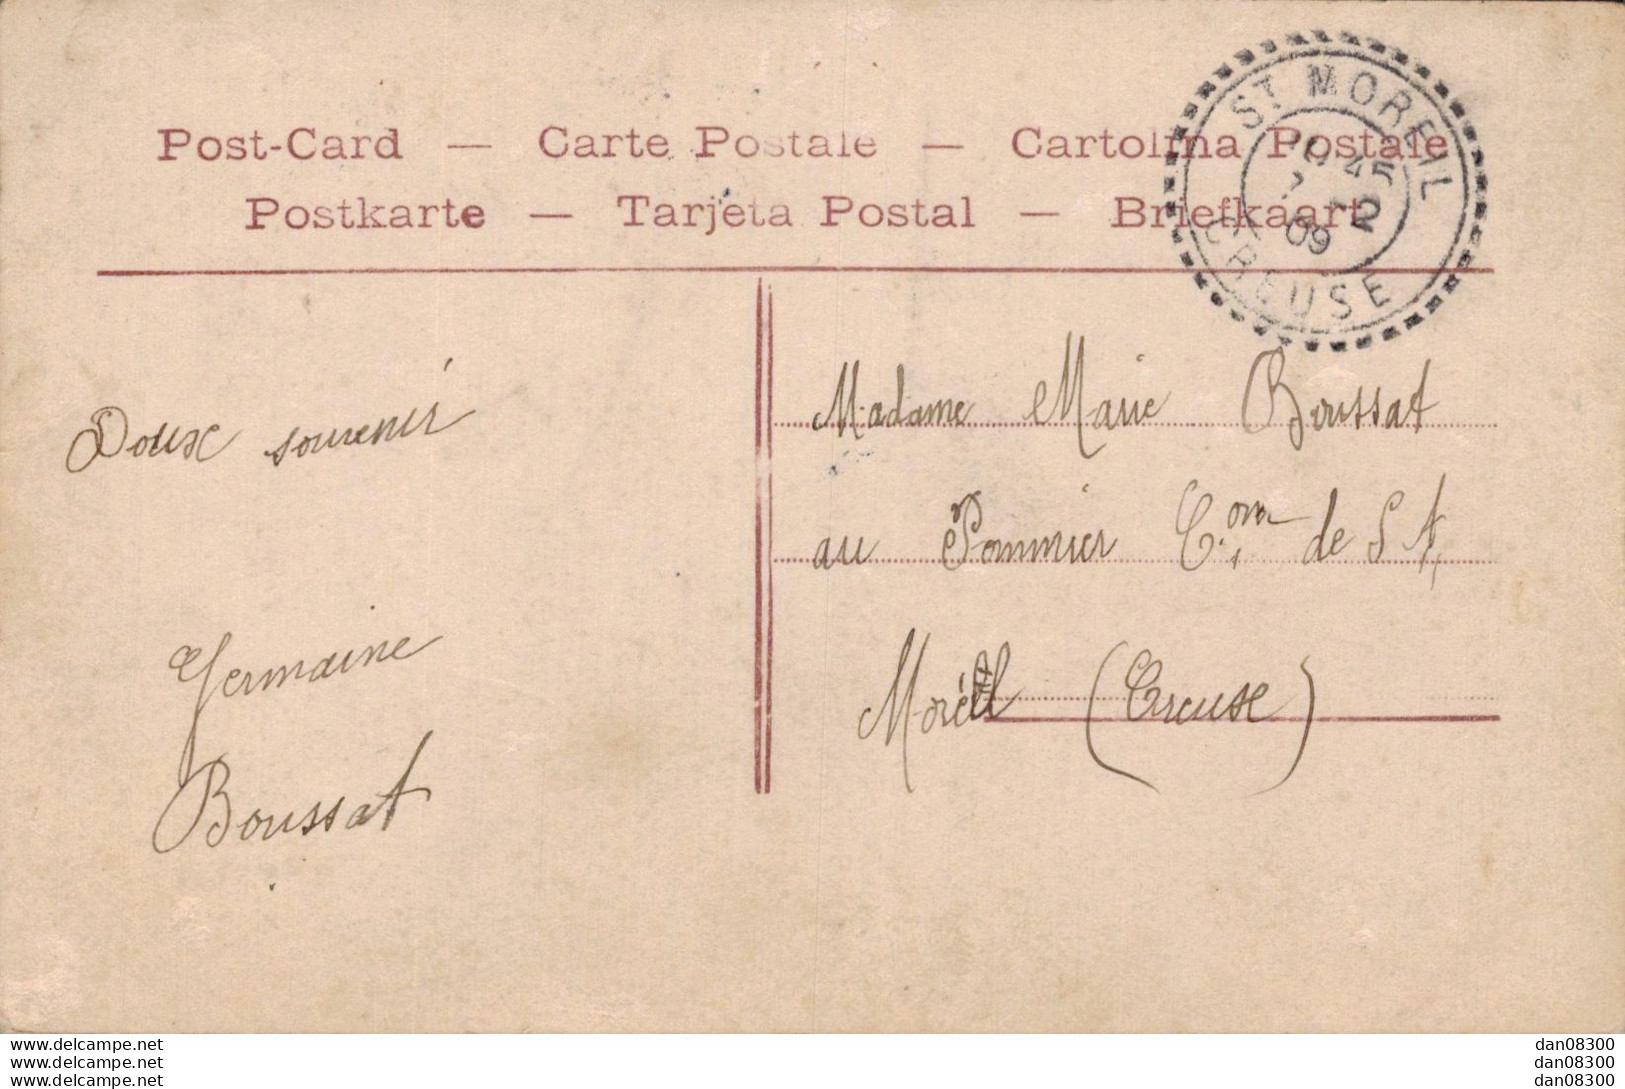 Post-Card — Carte Postale — Cartolina Postale
Postkarte — Tarjeta Postal — Briefkaart
ST MOREIL
45
2
09
CREUSE
Doux souvenir
Germaine
Boussat
Madame Marie Boussat
au Pommier Com de St
Moreil (Creuse)
www.delcampe.net
www.delcampe.net
www.delcampe.net
dan08300
dan08300
dan08300